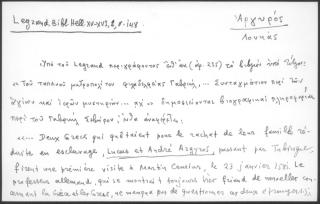 Legrand, Bibl. Hell. XV-XVI, 2, σ. 148
Ἀργυρός
Λουκᾶς
Ὑπὸ τοῦ Legrand περιγράφοντος (ἀρ. 235) τὸ βιβλίο ὑπὸ
«Τοῦ ταπεινοῦ μητροπολίτου φιλαδελφείας Γαβριὴλ, ... Συνταγμάτιον περὶ τῶν
ἁγίων καὶ ἱερῶν μυστηρίων ... δημοσιεύονται βιογραφικαὶ πληροφορίαι
περὶ τοῦ Γαβριὴλ Σεβήρου,
«... Deux Grecs qui quêtaient pour le rachat de leur famille ré-
duite en esclavage, Lucas et André Argyros, passant par Tubingue,
firent une première visite à Martin Crusius, le 23 janvier 1581. Le
professeur allemand, qui se montrait toujours friand de nouvelles con-
cernant la Grèce et les Grecs, ne manqua pas de questionner ces deux étrangers